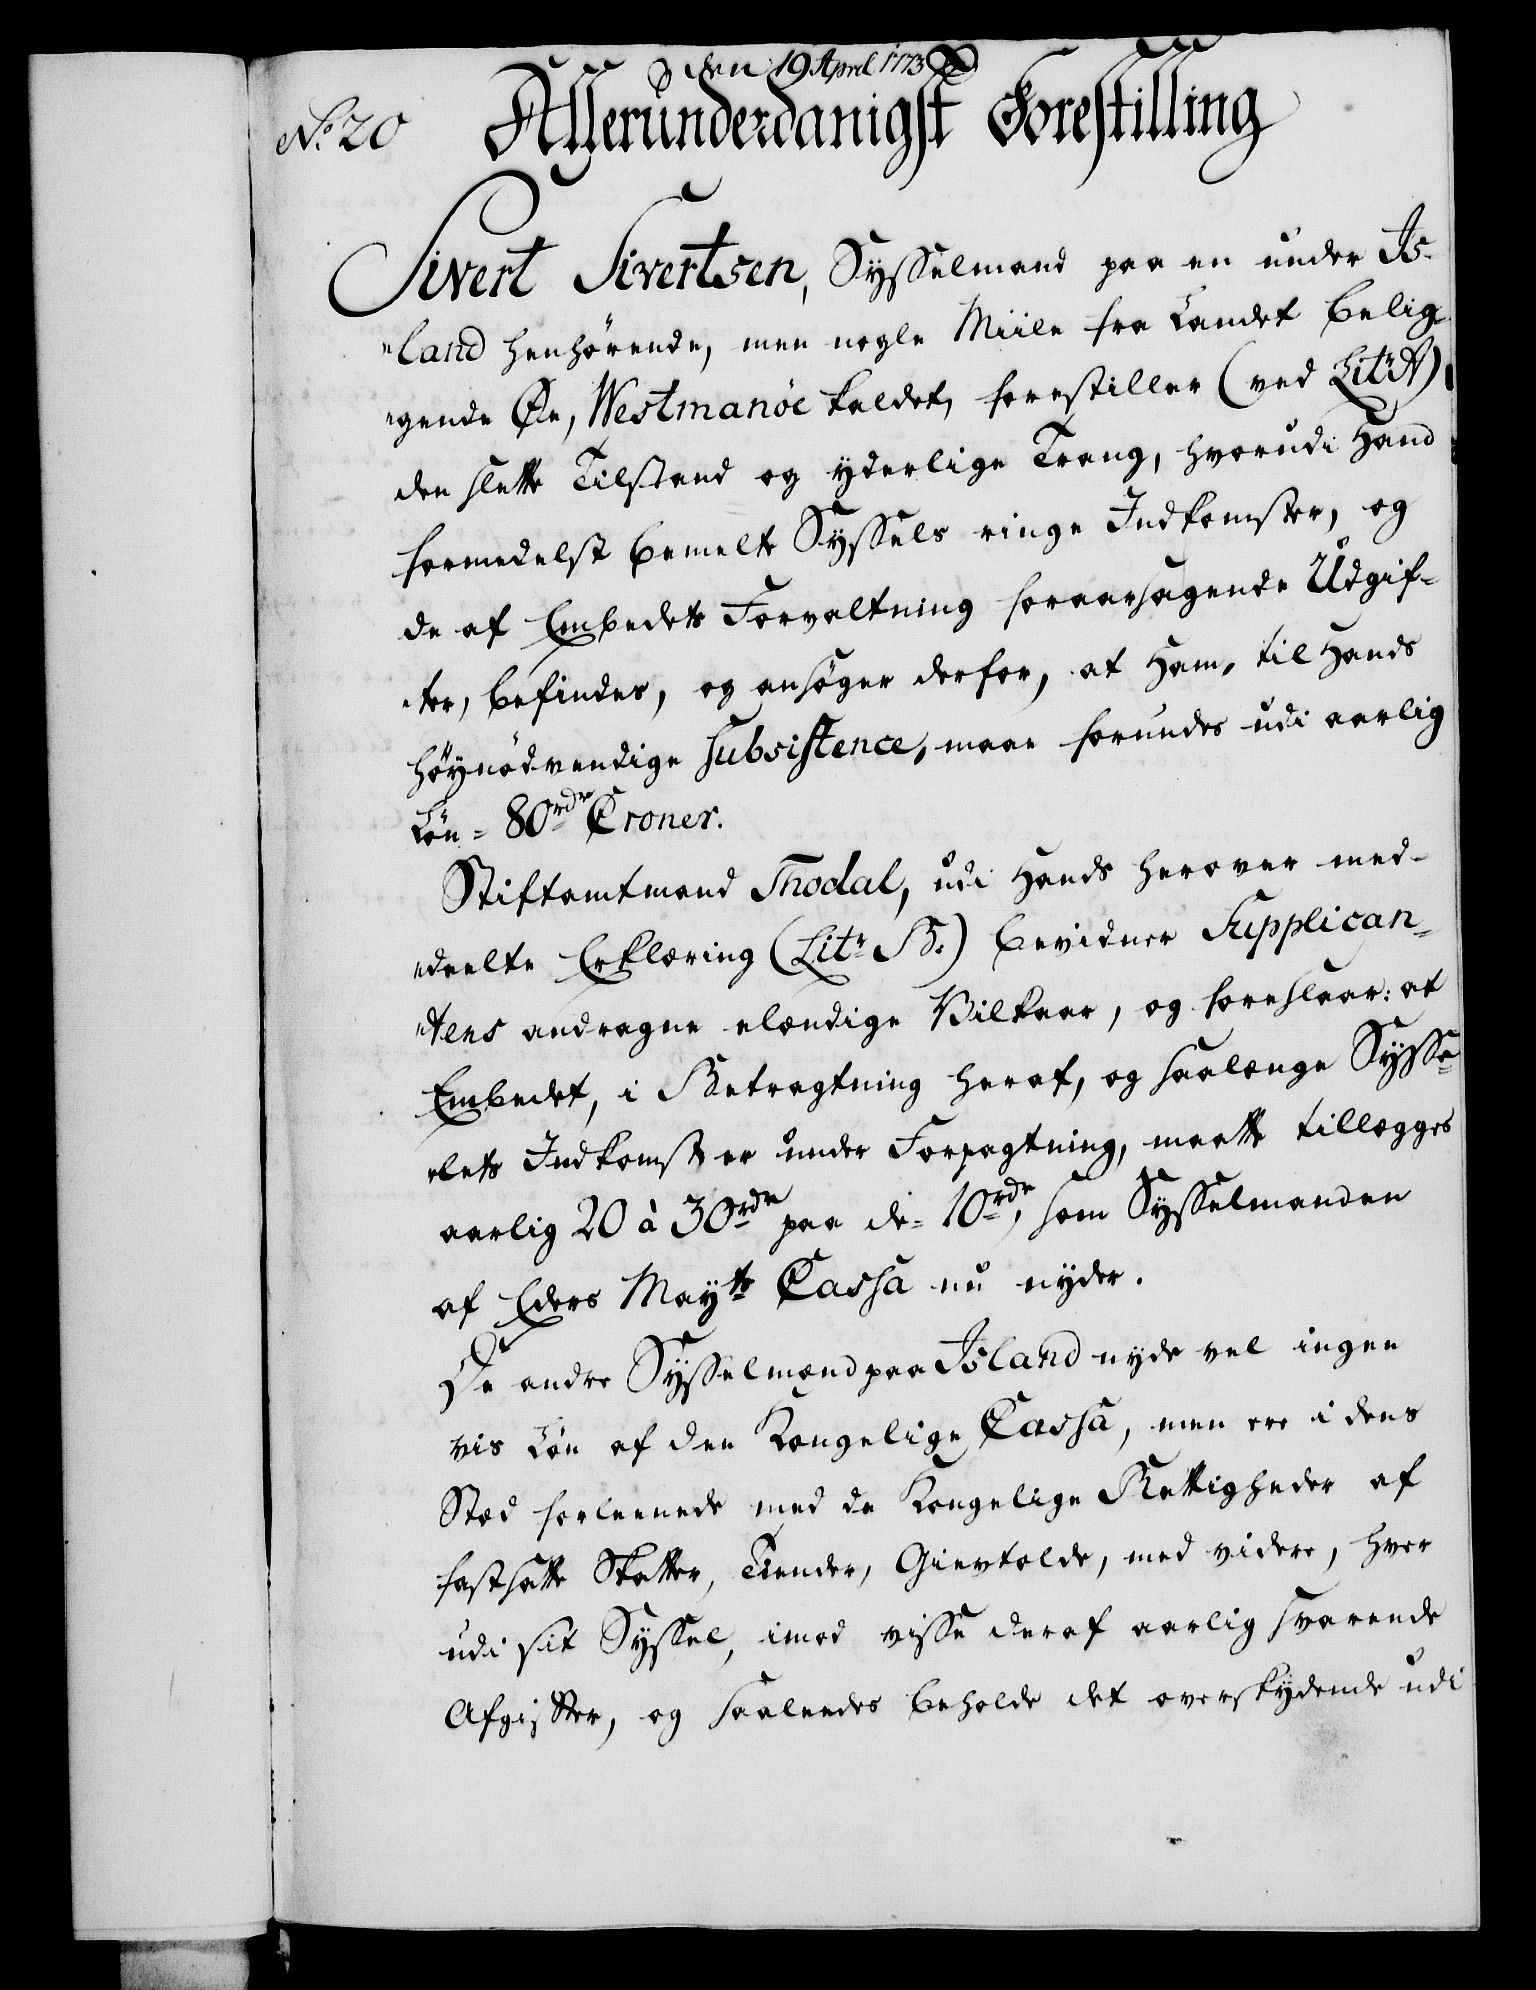 den 19 April 1773
No 20 Allerunderdanigst Forestilling
Sivert Sivertsen, Sysselmand paa en under Is-
"land henhørende, men nogle Miile fra Landet belig-
"gende Øe, Westmanöe kaldet, forestiller (ved Litr A)
den slette Tilstand og yderlige Trang, hvorudi Hand
formedelst bemelte Syssels ringe Indkomster, og
de af Embedets Forvaltning foraarsagende Udgif-
"ter, befindes, og ansøger derfor, at Ham, til Hands
höynødvendige Subsistence, maae forundes udi aarlig
Løn = 80 rdr Croner.
Stiftamtmand Thodal, udi Hands herover med-
"deelte Erklæring (Litr B.) bevidner Supplican-
"tens andragne elændige Vilkaar, og foreslaar: at
Embedet, i Betragtning heraf, og saalænge Sysse-
"lets Indkomst er under Forpagtning, maatte tillægges
aarlig 20 à 30 rdr paa de = 10 rdr, som Sysselmanden
af Eders Maytts Cassa nu nyder.
De andre Sysselmænd paa Island nyde vel ingen
vis Løn af den Kongelige Cassa, men ere i dens
Stæd forleenede med de Kongelige Rettigheder af
fastsatte Skatter, Tiender, Gieftolde, med videre, hver
udi sit Syssel, imod visse deraf aarlig svarende
Afgifter, og saaledes beholde det overskydende udi